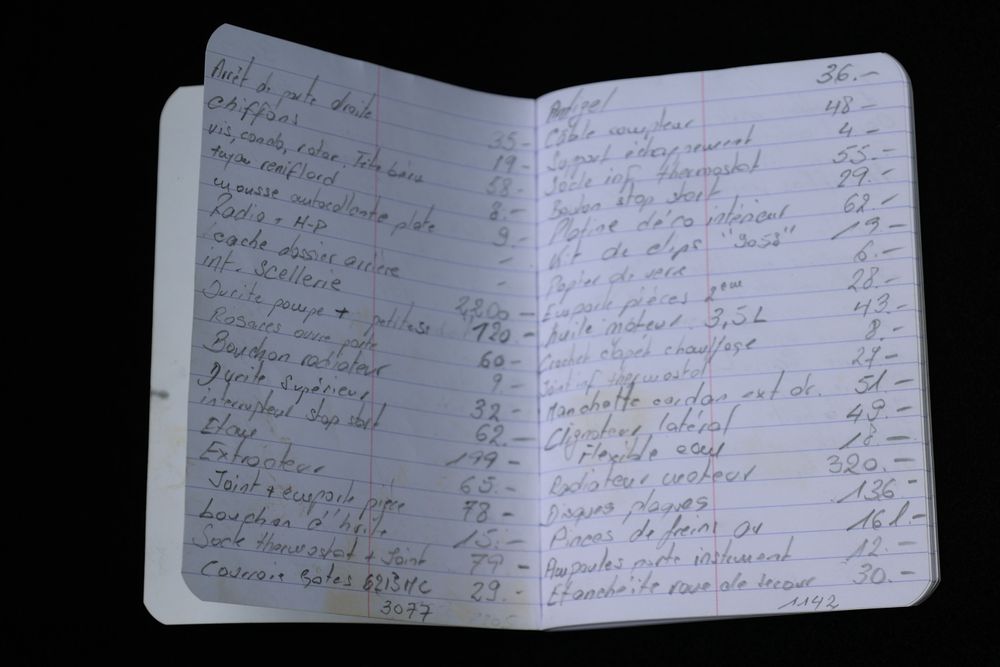 Arrêt de porte droite 35.-
Chiffons 19-
vis, condo, rotor, Tête 58-
tuyau reniflard 8.-
mousse autocollante plate 9.-
Radio + H-P -
cache dossier arrière -
int. Scellerie 2,200-
Durite pompe + petites 120.-
Rosaces ouvre porte 60-
Bouchon radiateur 9-
Durite Supérieur 32-
interrupteur stop start 62.-
Etau 199-
Extracteur 65.-
Joint + emporte pièce 78-
bouchon d'huile 15.-
Socle thermostat + Joint 79-
Courroie Gates 6213MC 29.-
3077
Antigel 36.-
Câble compteur 48-
Support échappement 4-
Socle inf. thermostat 55.-
Bouton stop start 29.-
Platine déco intérieur 62.-
Kit de clips 19-
Papier de verre 6.-
Emporte pièces 2ème 28.-
huile moteur 3,5L 43.-
Crochet clapet chauffage 8.-
Joint inf thermostat 27-
Manchette cardan ext dr. 51.-
Clignoteur latéral 49.-
Flexible eau 18-
Radiateur moteur 320.-
Disques plaques 136-
Pinces de freins 161.-
Ampoules porte instrument 12.-
Etanchéité roue de secour 30.-
1142